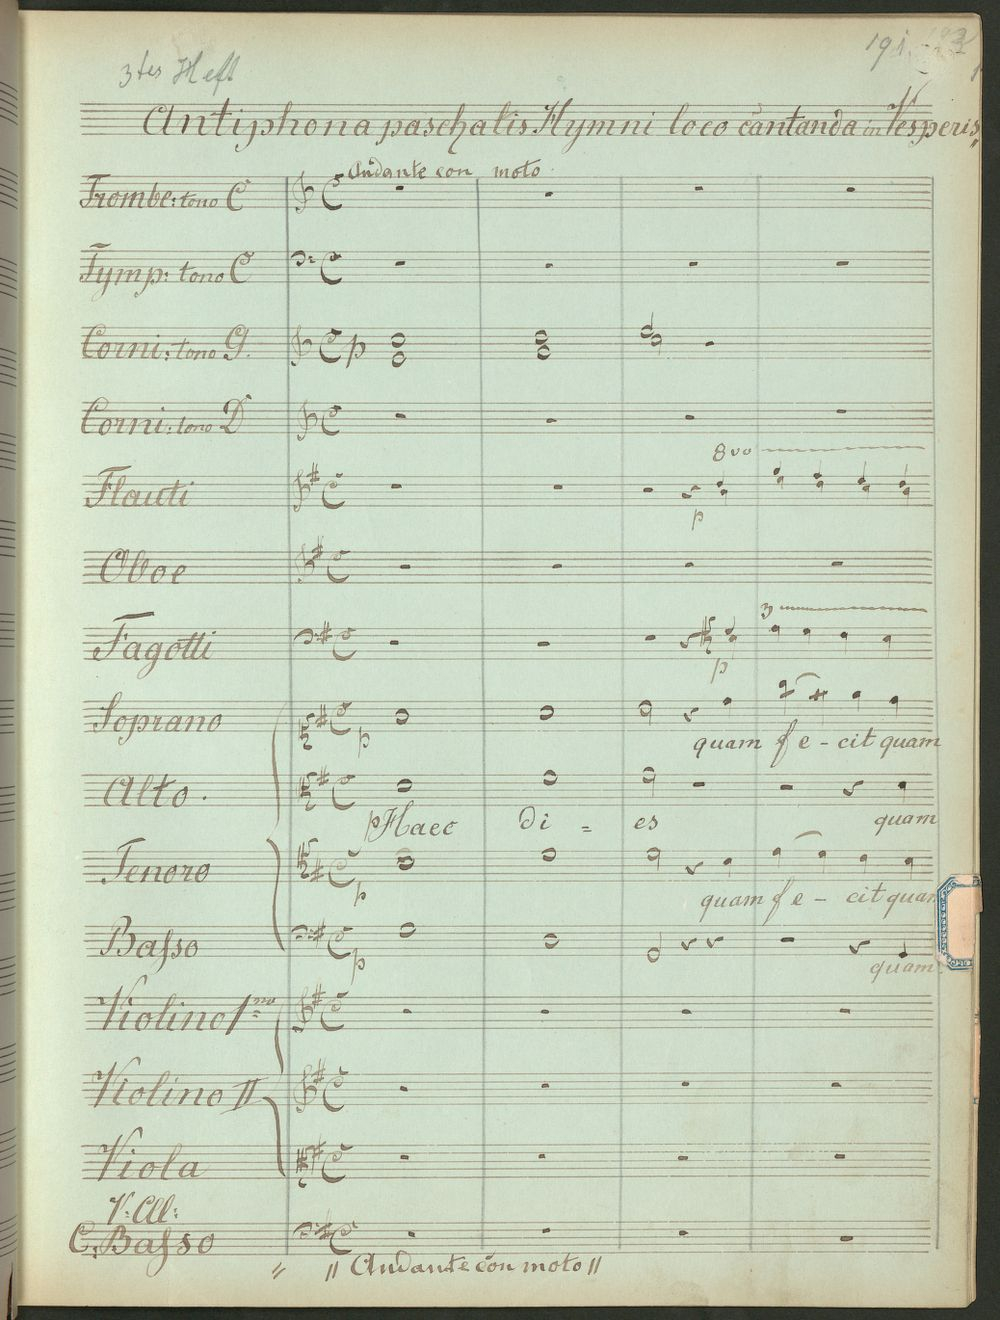 3tes Heft
191.
Antiphona paschalis Hymni loco cantanda in Vesperis
Andante con moto
Trombe: tono C
Tymp: tono C
Corni: tono G. p
Corni: tono D
8va
Flauti
p
Oboe
3
Fagotti
p
Soprano
p
quam fe - cit quam
Alto.
p Haec di = es quam
Tenoro
p
quam fe - cit quam
Basso
p
quam
Violino 1mo
Violino II
Viola
V: Cll:
C: Basso
" " Andante con moto "